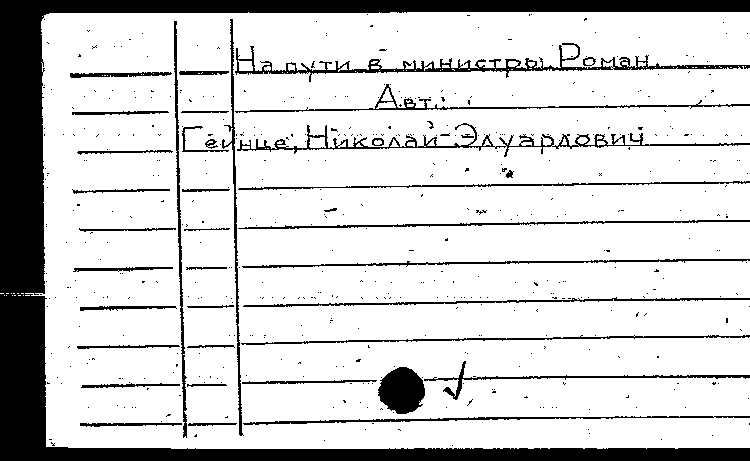 На пути в министры. Роман.
Авт.:
Гейнце, Николай Эдуардович